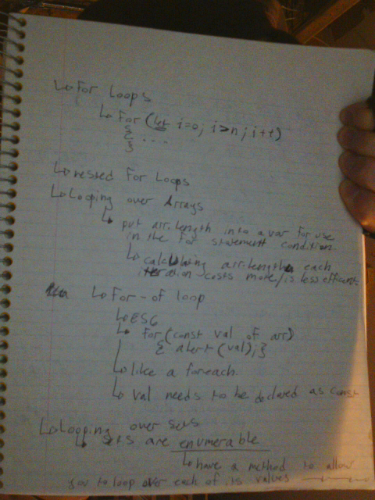 ↳ For Loops
↳ for (let i=0; i>n; i++)
{ ...
}
↳ nested For Loops
↳ Looping over Arrays
↳ put arr.length into a var for use
in the for statement condition.
↳ calculating arr.length each
iteration costs more/is less efficient
↳ For-of loop
↳ ES6
↳ for (const val of arr)
{ alert (val); }
↳ like a foreach
↳ val needs to be declared as const
↳ Looping over sets
↳ sets are enumerable
↳ have a method to allow
you to loop over each of its values